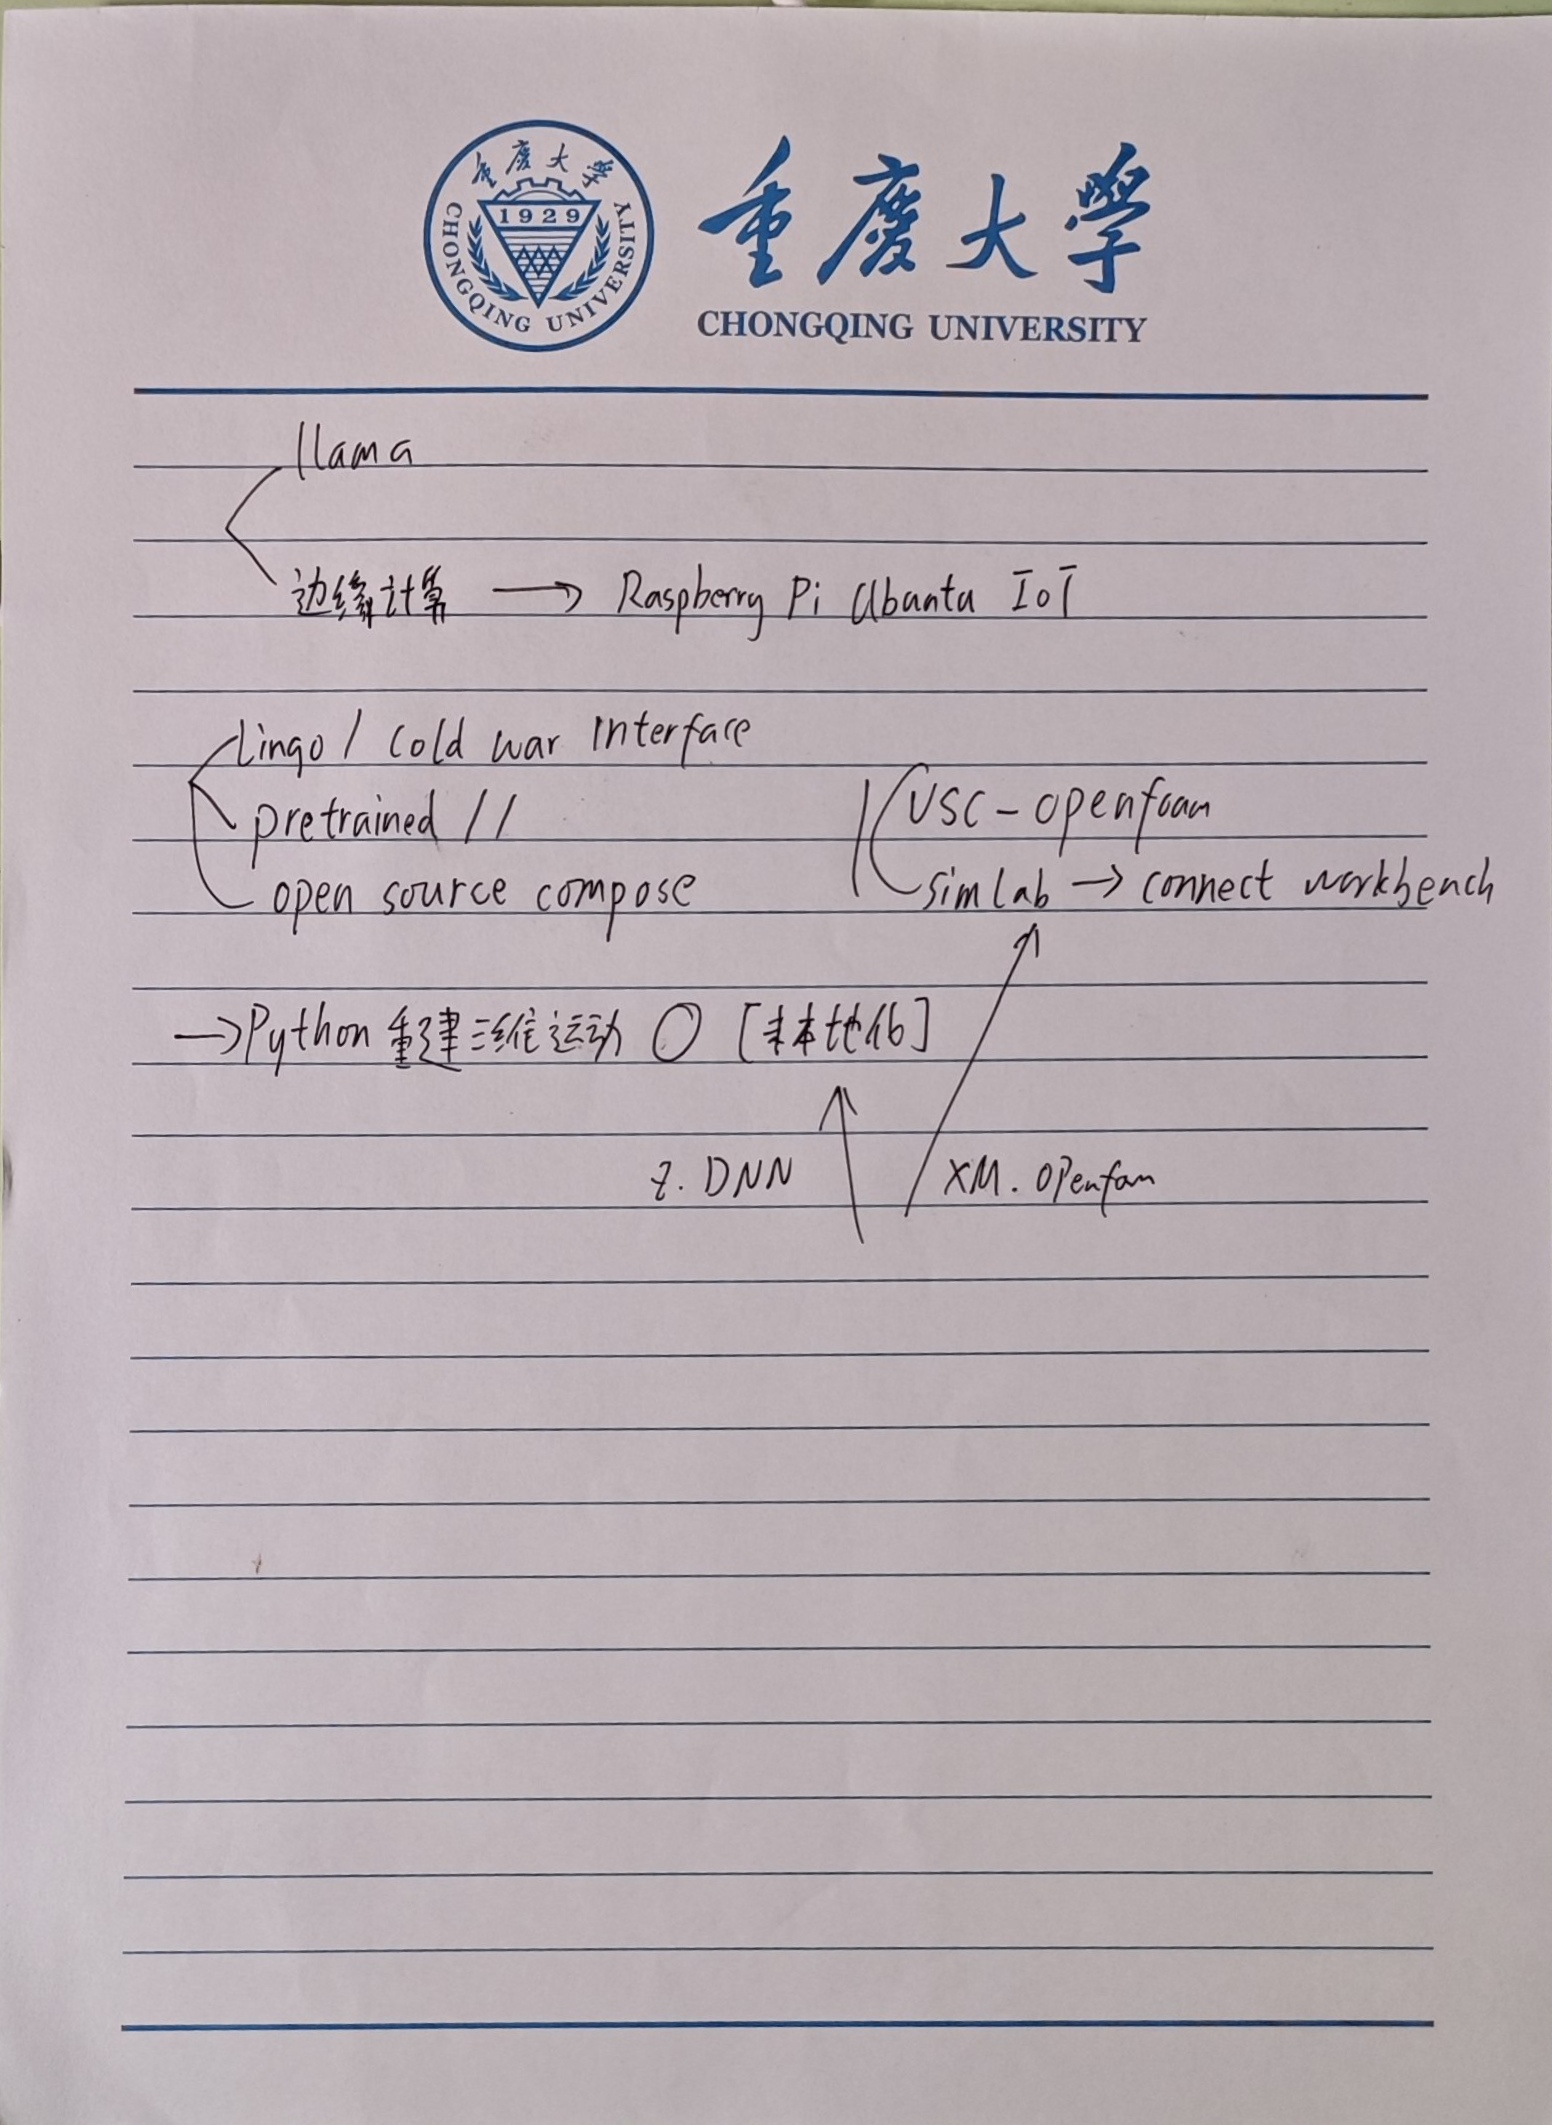 重慶大學
1929
CHONGQING UNIVERSITY
重慶大學
CHONGQING UNIVERSITY
llama
边缘计算 → Raspberry Pi Ubantu IoT
Lingo / Cold war Interface
pretrained //
VSC - openfoam
open source compose
simlab → connect workbench
→ Python 重建三维运动 ○ [未本地化]
Z. DNN
XM. Openfoam